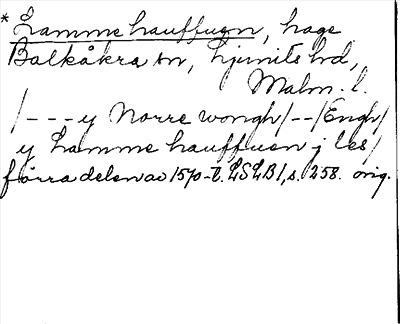 * Lammehauffuen, hage
Balkåkra sn, Ljunits hd,
Malm. l.
/--- y Norre wongh/--/Engh/
y Lamme hauffuen j les/
förra delen av 1570-t. LSLB1, s. 258. orig.